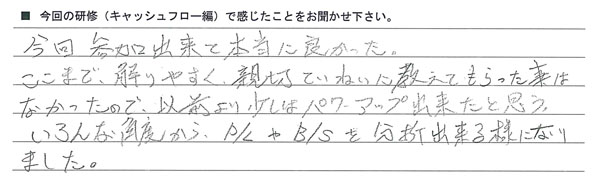 ■ 今回の研修（キャッシュフロー編）で感じたことをお聞かせ下さい。
今回 参加出来て本当に良かった。
ここまで、解りやすく、親切ていねいに教えてもらった事は
なかったので、以前より少しはパワーアップ出来たと思う。
いろんな角度から、P/LやB/Sを分析出来る様になり
ました。